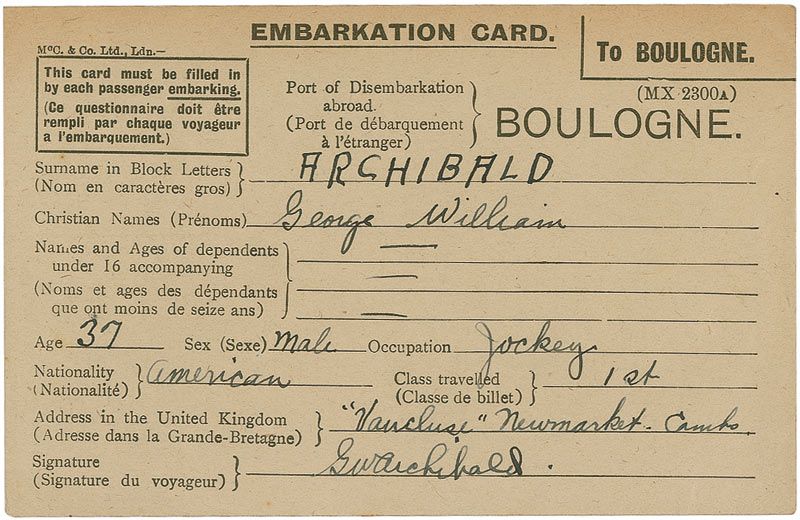 EMBARKATION CARD.
McC. & Co. Ltd., Ldn.—
To BOULOGNE.
This card must be filled in
by each passenger embarking.
(Ce questionnaire doit être
rempli par chaque voyageur
a l'embarquement.)
Port of Disembarkation
abroad.
(Port de débarquement
à l'étranger)
(MX 2300A)
BOULOGNE.
Surname in Block Letters
(Nom en caractères gros)
ARCHIBALD
Christian Names (Prénoms) George William
Names and Ages of dependents
under 16 accompanying
(Noms et ages des dépendants
que ont moins de seize ans)
Age 37 Sex (Sexe) Male Occupation Jockey
Nationality
(Nationalité)
American
Class travelled
(Classe de billet)
1st
Address in the United Kingdom
(Adresse dans la Grande-Bretagne)
"Vaucluse" Newmarket - Cambs.
Signature
(Signature du voyageur)
GWArchibald.